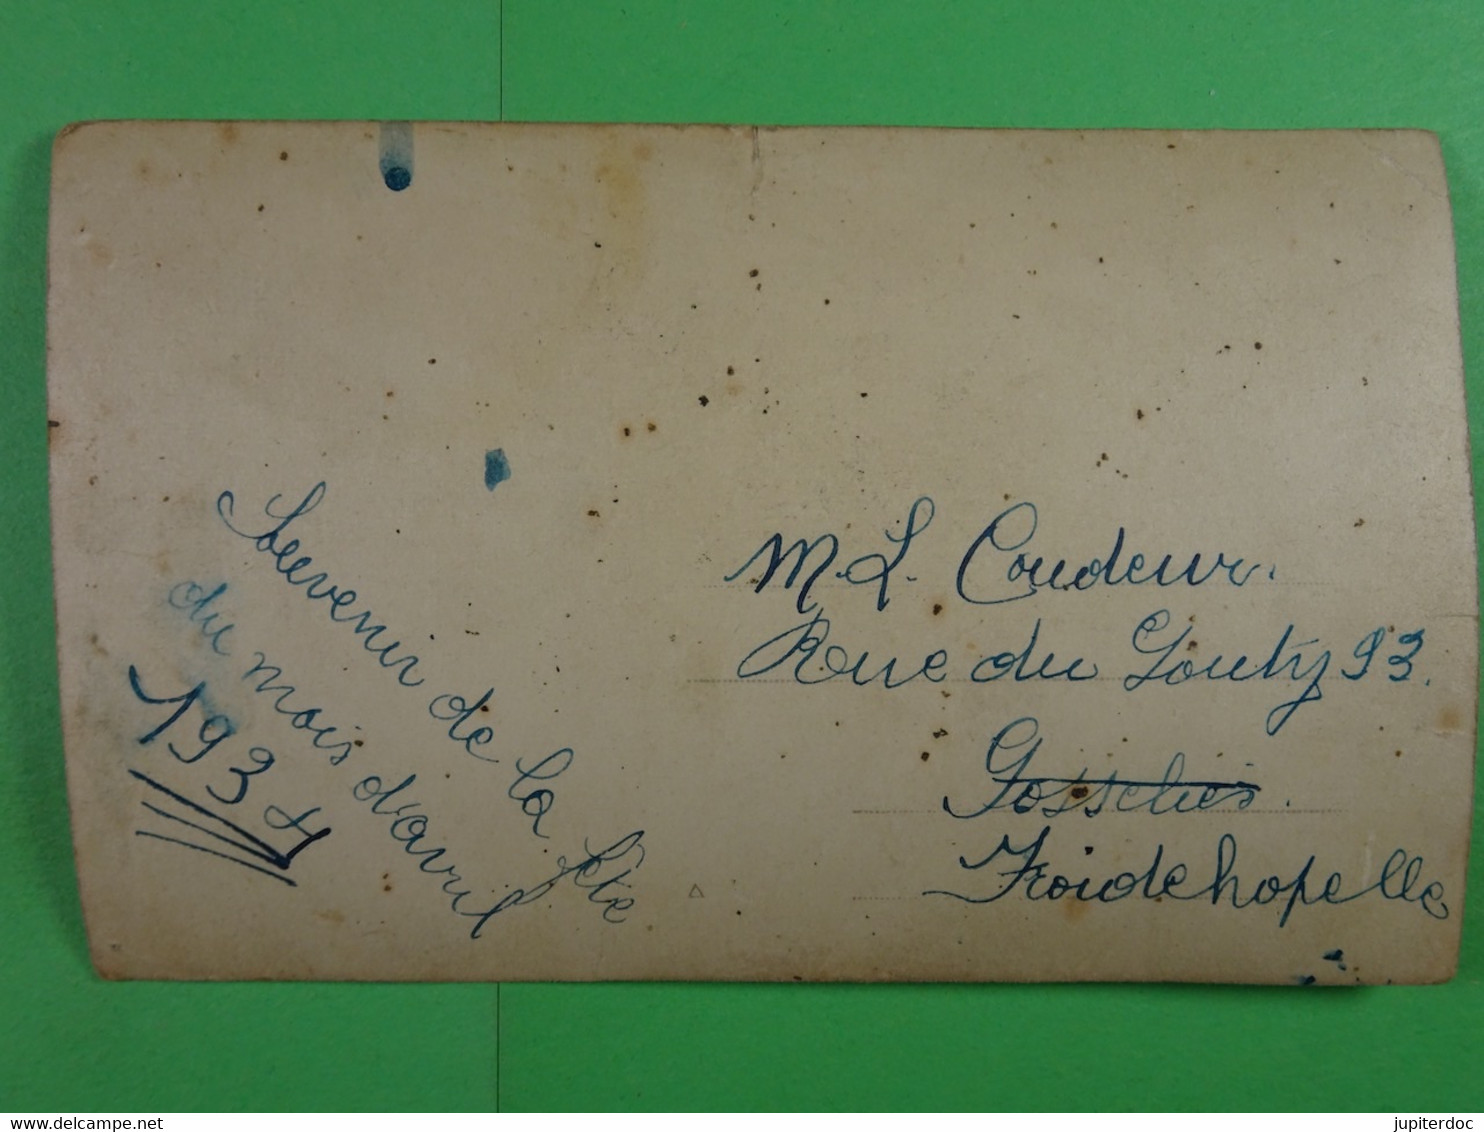 Souvenir de la fête
du mois d'avril
1934
M. L. Coudeur.
Rue du Gouty 93.
Gosselies.
Froidchapelle
www.delcampe.net
jupiterdoc